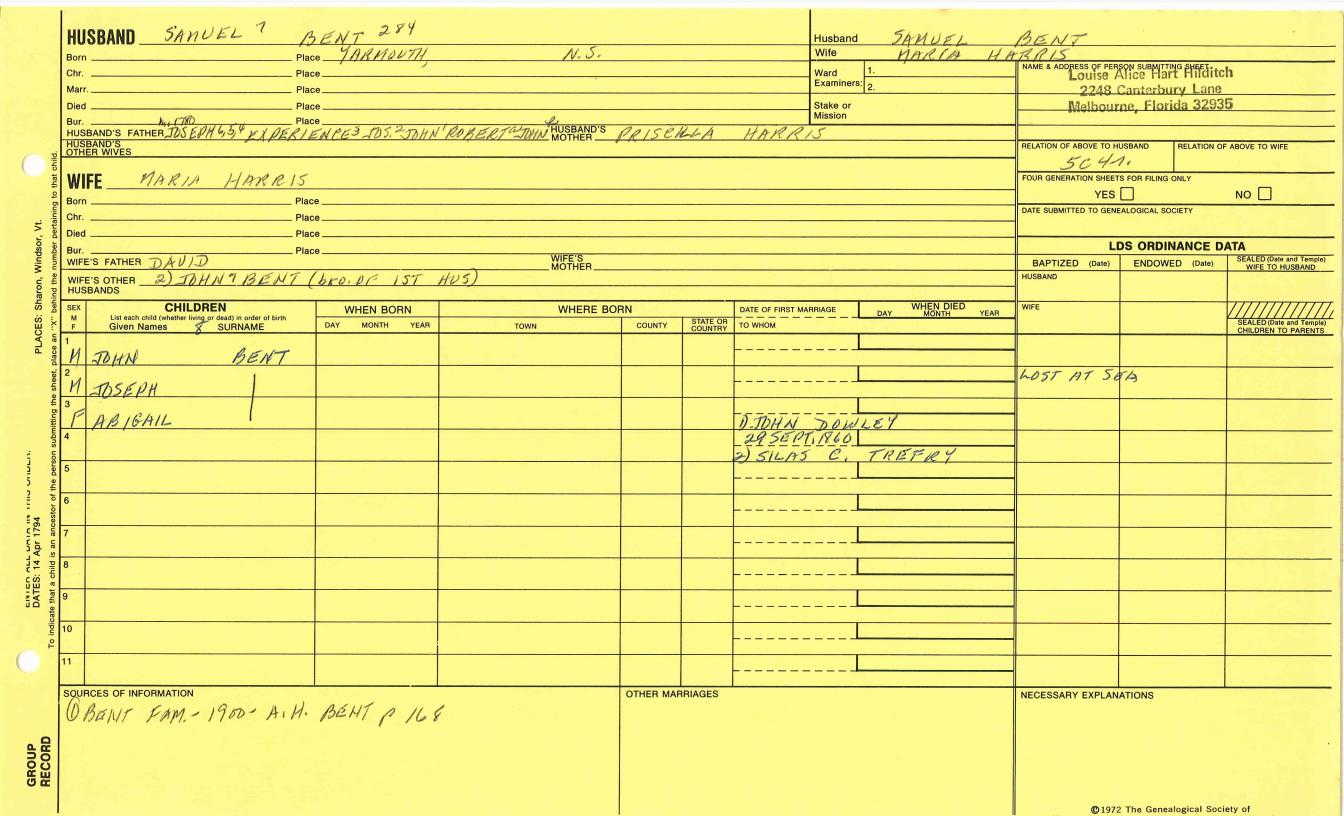 HUSBAND SAMUEL 7 BENT 284
Born Place YARMOUTH, N.S.
Chr. Place
Marr. Place
Died Place
Bur. Place
HUSBAND'S FATHER JOSEPH 6,5,4 EXPERIENCE 3 JOS. 2 JOHN 1 ROBERT JOHN HUSBAND'S MOTHER PRISCILLA HARRIS
HUSBAND'S OTHER WIVES
Husband SAMUEL BENT
Wife MARIA HARRIS
Ward Examiners: 1.
2.
Stake or Mission
NAME & ADDRESS OF PERSON SUBMITTING SHEET
Louise Alice Hart Hilditch
2248 Canterbury Lane
Melbourne, Florida 32935
RELATION OF ABOVE TO HUSBAND RELATION OF ABOVE TO WIFE
5C4R.
FOUR GENERATION SHEETS FOR FILING ONLY
YES NO
DATE SUBMITTED TO GENEALOGICAL SOCIETY
WIFE MARIA HARRIS
Born Place
Chr. Place
Died Place
Bur. Place
WIFE'S FATHER DAVID WIFE'S MOTHER
WIFE'S OTHER HUSBANDS 2) JOHN 7 BENT (bro. OF 1ST HUS)
LDS ORDINANCE DATA
BAPTIZED (Date) ENDOWED (Date) SEALED (Date and Temple) WIFE TO HUSBAND
HUSBAND
WIFE
SEALED (Date and Temple) CHILDREN TO PARENTS
SEX M F
CHILDREN
List each child (whether living or dead) in order of birth
Given Names 8 SURNAME
WHEN BORN
DAY MONTH YEAR
WHERE BORN
TOWN COUNTY STATE OR COUNTRY
DATE OF FIRST MARRIAGE
TO WHOM
WHEN DIED
DAY MONTH YEAR
1
M JOHN BENT
2
M JOSEPH LOST AT SEA
3
F ABIGAIL 1) JOHN DOWLEY
4 29 SEPT, 1860
2) SILAS C. TREFRY
5
6
7
8
9
10
11
SOURCES OF INFORMATION
① BENT FAM. - 1900 - A.H. BENT p 168
OTHER MARRIAGES
NECESSARY EXPLANATIONS
©1972 The Genealogical Society of
PLACES: Sharon, Windsor, Vt.
ENTER ALL DATA IN THIS ORDER:
DATES: 14 Apr 1794
To indicate that a child is an ancestor of the person submitting the sheet, place an "X" behind the number pertaining to that child.
GROUP RECORD